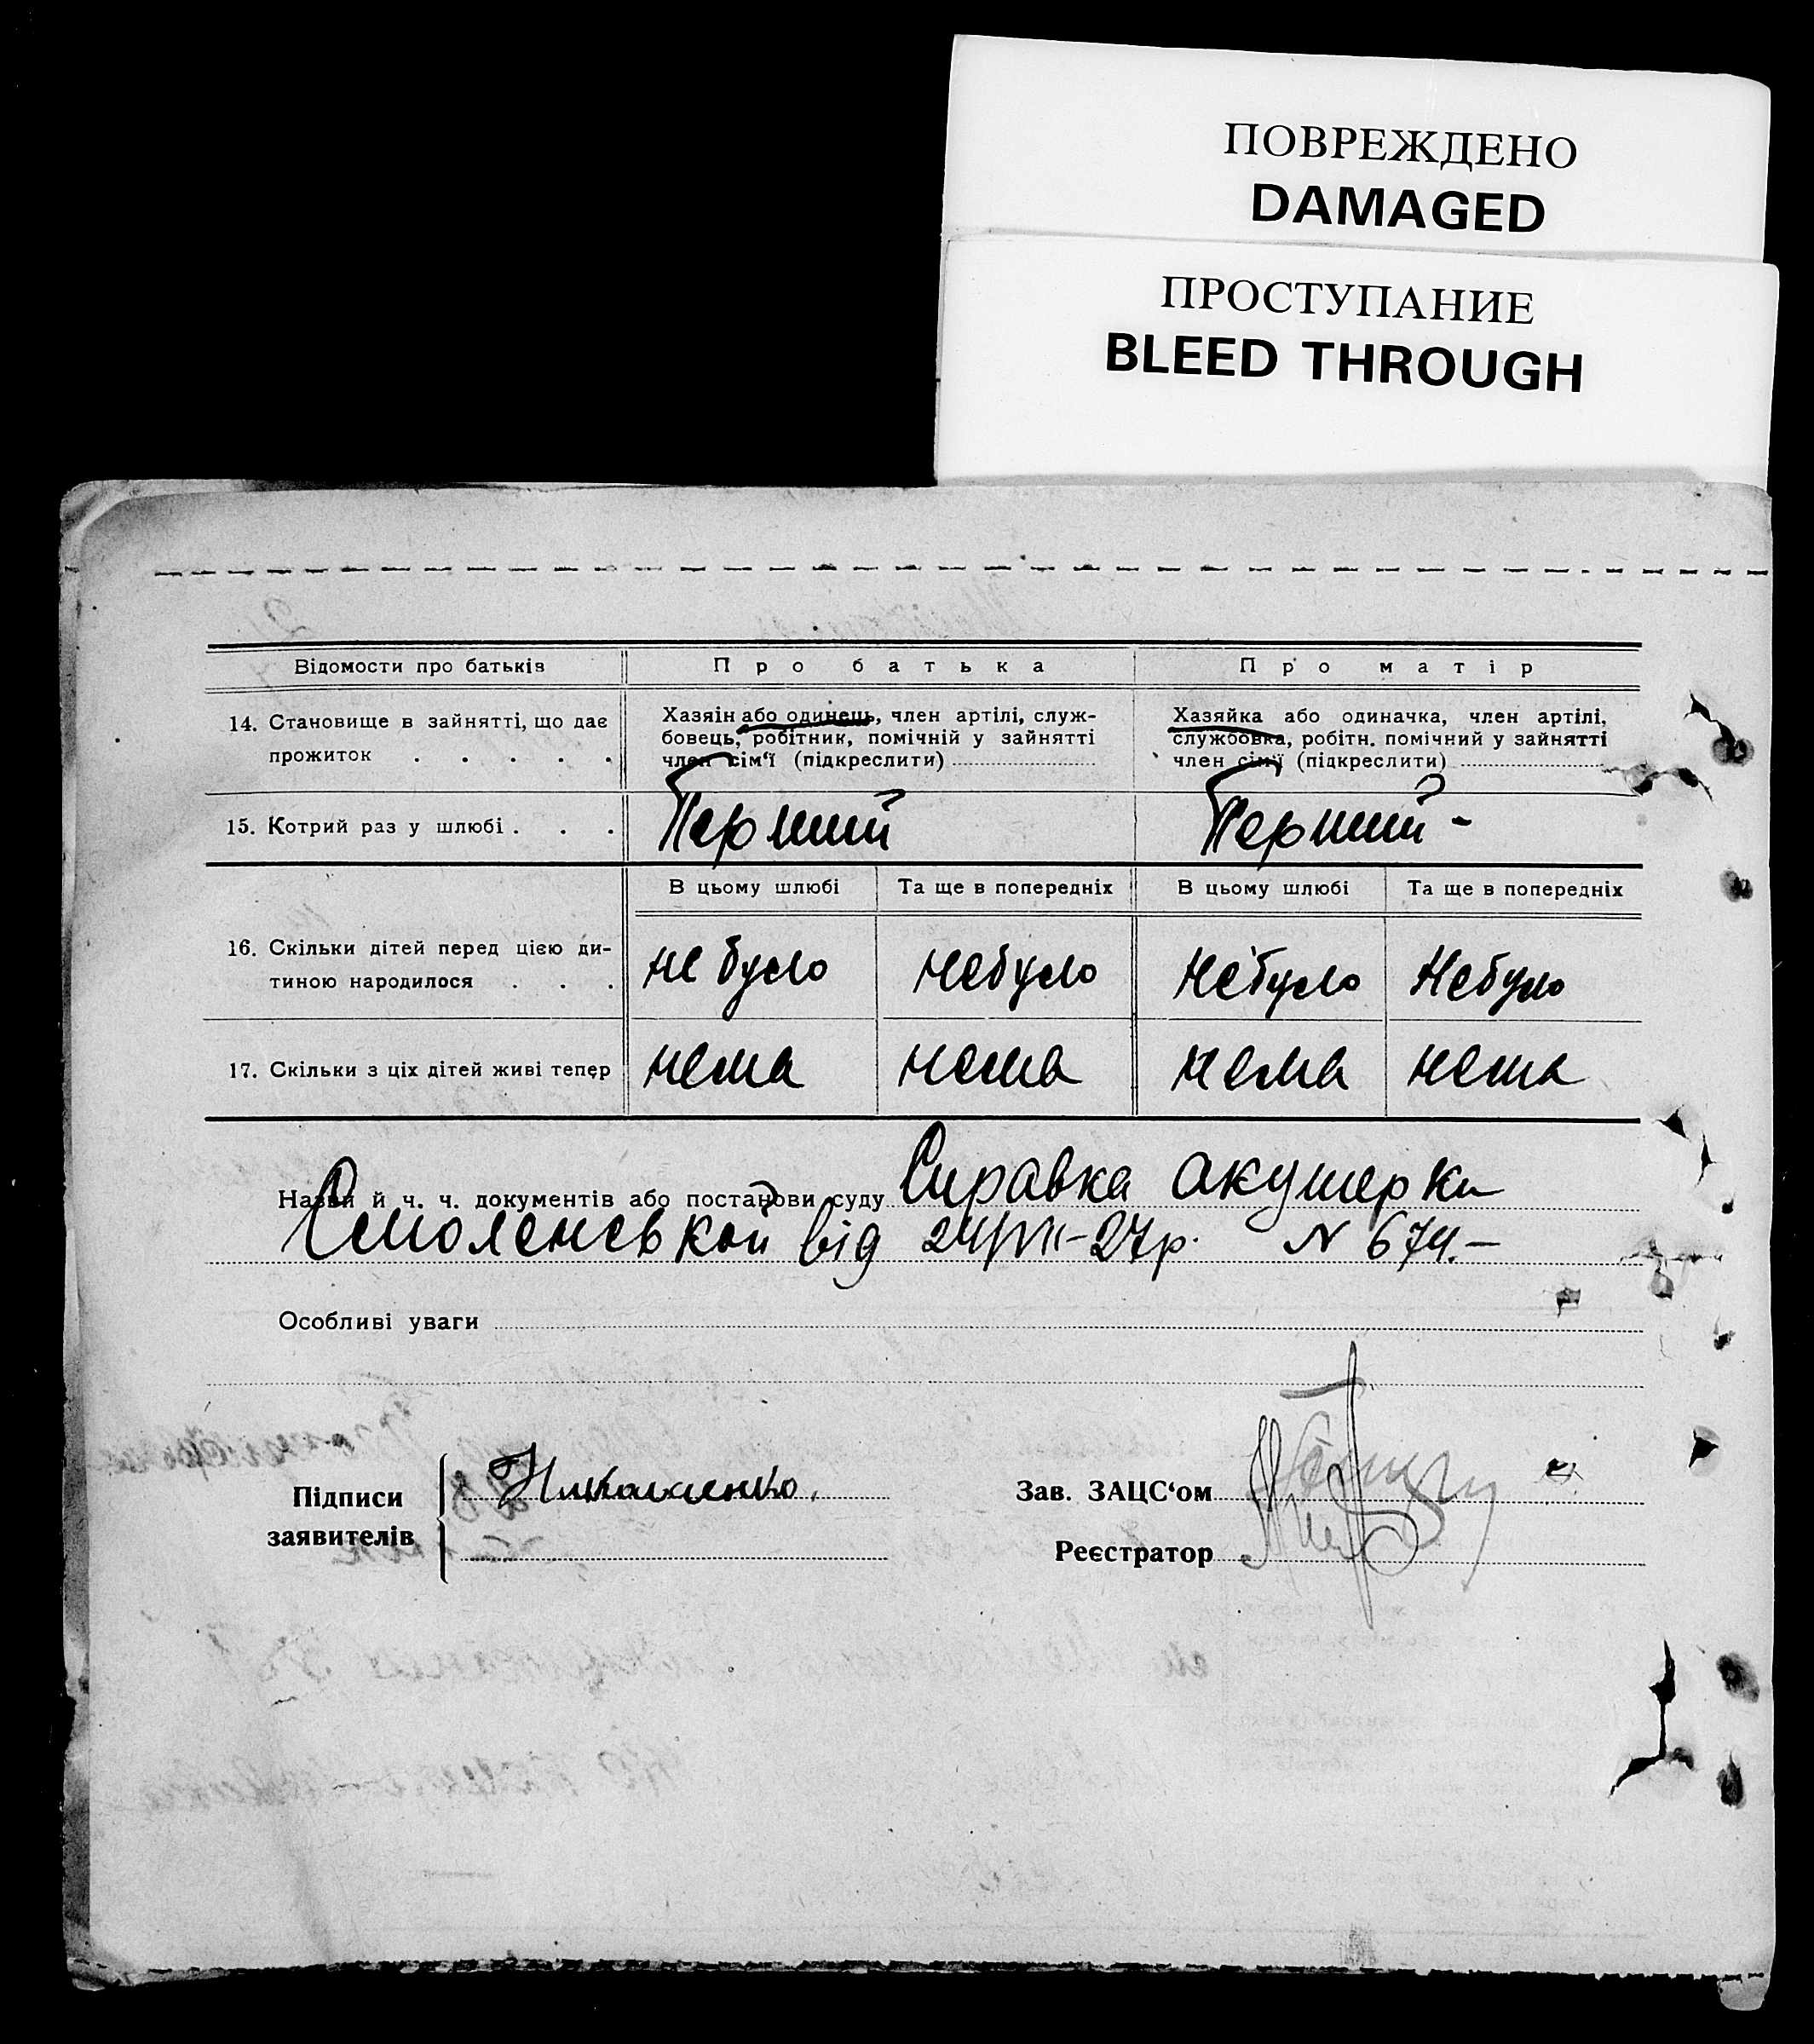 ПОВРЕЖДЕНО
DAMAGED
ПРОСТУПАНИЕ
BLEED THROUGH
Відомости про батьків Про батька Про матір
14. Становище в зайнятті, що дає прожиток . . . . .
Хазяін або одинець, член артілі, служ-
бовець, робітник, помічній у зайнятті
член сім'ї (підкреслити)
Хазяйка або одиначка, член артілі,
службовка, робітн. помічний у зайнятті
член сім'ї (підкреслити)
15. Котрий раз у шлюбі . . . Перший Перший -
В цьому шлюбі Та ще в попередніх В цьому шлюбі Та ще в попередніх
16. Скільки дітей перед цією ди-
тиною народилося . . . не було небуло небуло Небуло
17. Скільки з ціх дітей живі тепер нема нема нема нема
Назви й ч. ч. документів або постанови суду Справка акушерки
Смоленськой від 24/VII-27р. N 674.-
Особливі уваги
Підписи
заявителів
Николаенко.
Зав. ЗАЦС'ом
Реєстратор